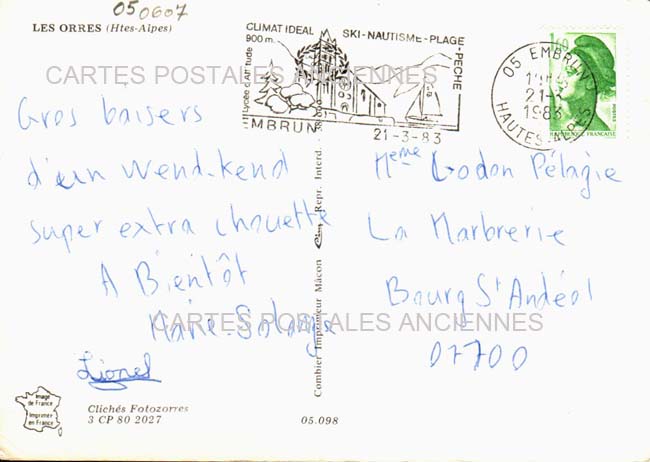 050607
LES ORRES (Htes-Alpes)
CLIMAT IDEAL SKI-NAUTISME-PLAGE-PECHE
900 m.
Lycée d'Altitude
EMBRUN
21-3-83
05 EMBRUN
21-3
1983
HAUTES-ALPES
1,60
POSTES
RÉPUBLIQUE FRANÇAISE
CARTES POSTALES ANCIENNES
Gros baisers
d'un Wend-kend
super extra chouette
A Bientôt
Marie-Solange
Lionel
Meme Godon Pélagie
La Marbrerie
Bourg St Andéol
07700
CARTES POSTALES ANCIENNES
Combier Imprimeur Mâcon Cim Repr. Interd.
Image
de France
Imprimer
en France
Clichés Fotozorres
3 CP 80 2027
05.098